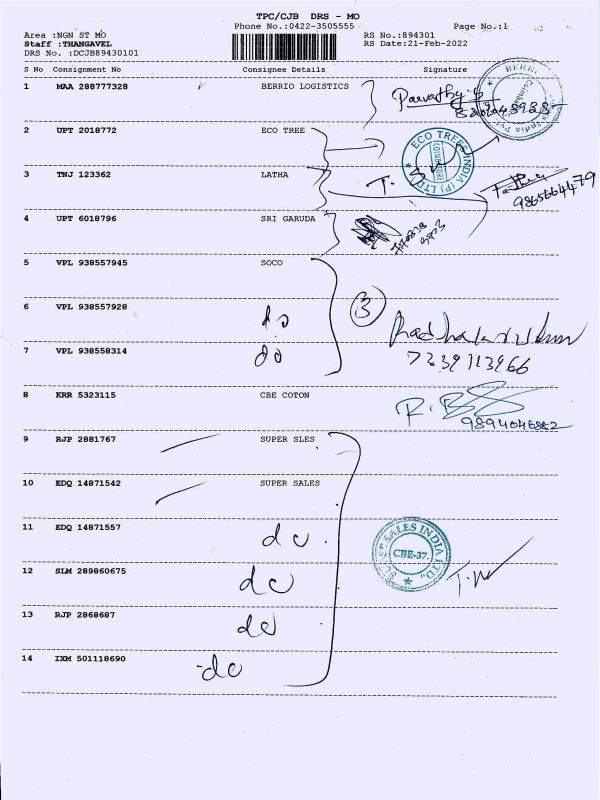 TPC/CJB DRS - MO
Phone No.:0422-3505555 Page No.:1
Area :NGN ST MO RS No.:894301
Staff :THANGAVEL RS Date:21-Feb-2022
DRS No. :DCJB89430101
S No Consignment No Consignee Details Signature
1 MAA 288777328 BERRIO LOGISTICS Parvathy.S
2 UPT 2018772 ECO TREE ECO TREES INDIA (P) LTD COIMBATORE
3 TNJ 123362 LATHA T.
9865664479
4 UPT 6018796 SRI GARUDA
5 VPL 938557945 SOCO
6 VPL 938557928 do 3
7 VPL 938558314 do Radhakrishnan
7339113966
8 KRR 5323115 CBE COTON R.B
9894046882
9 RJP 2881767 SUPER SLES
10 EDQ 14871542 SUPER SALES
11 EDQ 14871557 do SALES INDIA LTD. CBE-37.
12 SLM 289860675 do
13 RJP 2868687 do
14 IXM 501118690 do